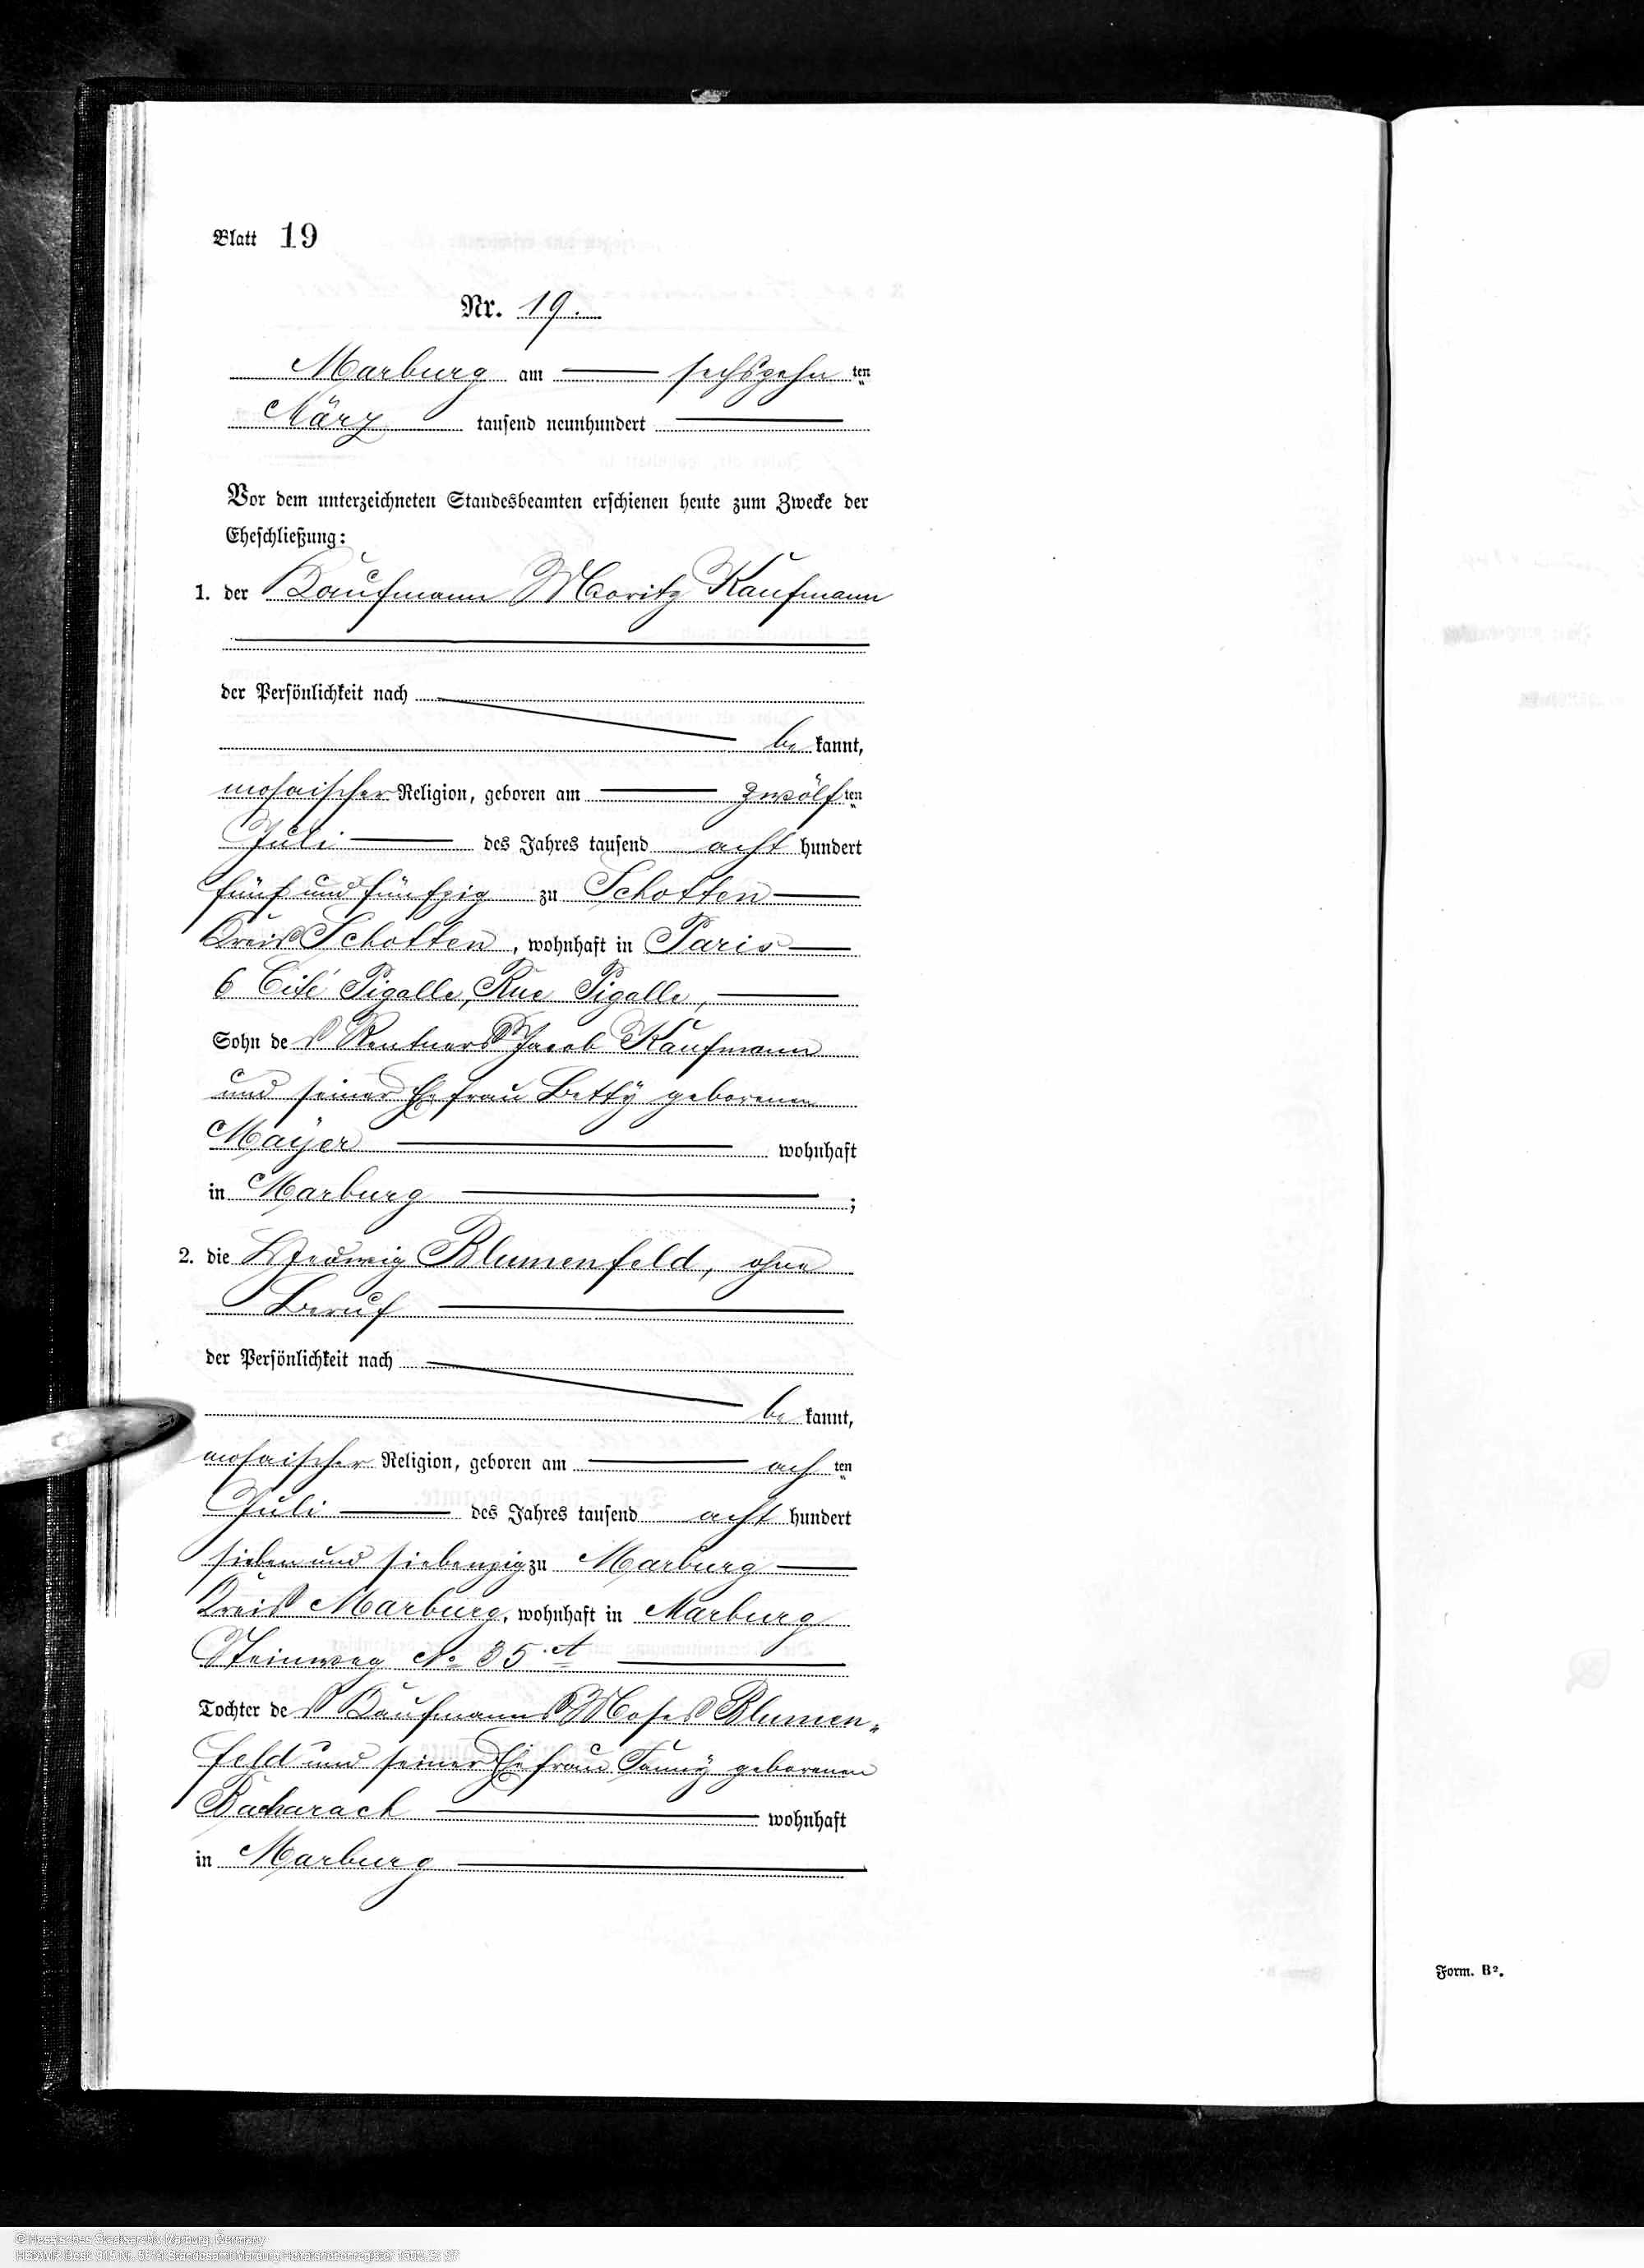 Blatt 19
Nr. 19.
Marburg am sechszehn ten
März tausend neunhundert
Vor dem unterzeichneten Standesbeamten erschienen heute zum Zwecke der
Eheschließung:
1. der Kaufmann Moritz Kaufmann
der Persönlichkeit nach
be kannt,
mosaischer Religion, geboren am zwölf ten
Juli des Jahres tausend acht hundert
fünf und fünfzig zu Schotten
Kreis Schotten, wohnhaft in Paris
6 Cité Pigalle, Rue Pigalle,
Sohn des Rentners Jacob Kaufmann
und seiner Ehefrau Betty geborenen
Mayer wohnhaft
in Marburg ;
2. die Hedwig Blumenfeld, ohne
Beruf
der Persönlichkeit nach
be kannt,
mosaischer Religion, geboren am ach ten
Juli des Jahres tausend acht hundert
sieben und siebenzig zu Marburg
Kreis Marburg, wohnhaft in Marburg
Steinweg No 35 A
Tochter des Kaufmanns Moses Blumen-
feld und seiner Ehefrau Fanny geborenen
Bacharach wohnhaft
in Marburg
Form. B².
© Hessisches Staatsarchiv Marburg, Germany